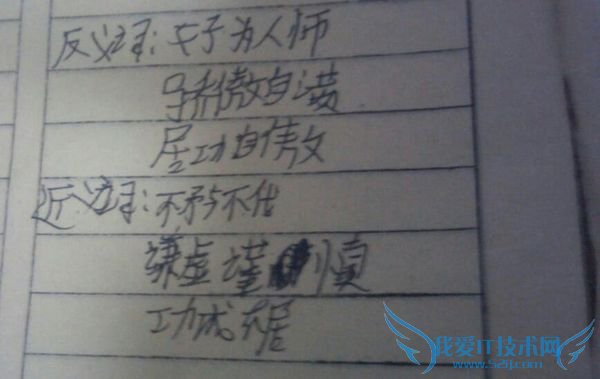 反义词：好为人师
骄傲自满
居功自傲
近义词：不矜不伐
谦虚谨慎
功成不居
我爱IT技术网
www.52ij.com